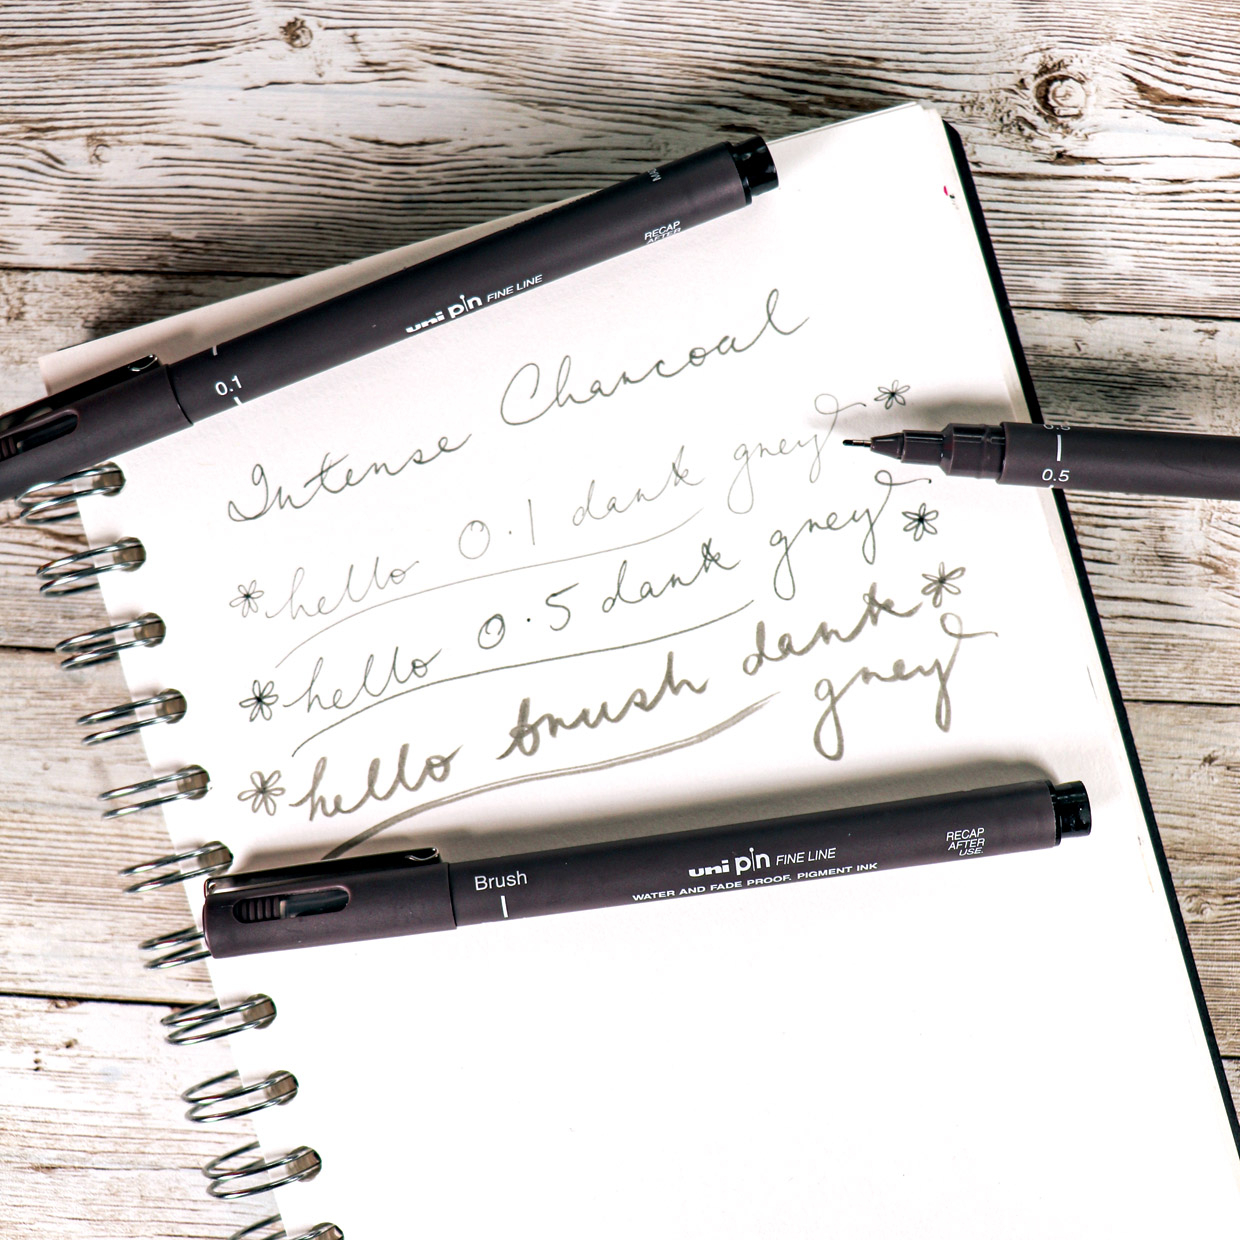 MA
RECAP
AFTER
uni pin FINE LINE
0.1
Intense Charcoal
hello 0.1 dark grey
0.5
hello 0.5 dark grey
hello brush dark
grey
Brush
uni pin FINE LINE
WATER AND FADE PROOF, PIGMENT INK
RECAP
AFTER
USE.